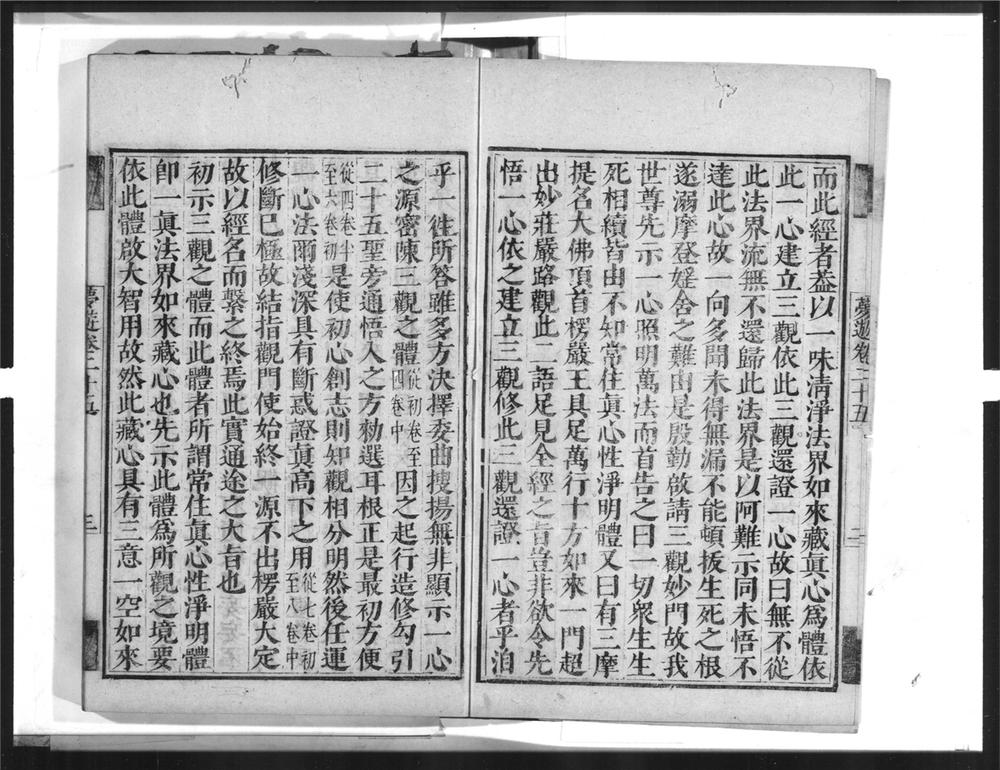 而此經者葢以一味清淨法界如來藏眞心爲體依
此一心建立三觀依此三觀還證一心故曰無不從
此法界流無不還歸此法界是以阿難示同未悟不
達此心故一向多聞未得無漏不能頓拔生死之根
遂溺摩登婬舍之難由是殷勤啟請三觀妙門故我
世尊先示一心照明萬法而首告之曰一切衆生生
死相續皆由不知常住眞心性淨明體又曰有三摩
提名大佛頂首楞嚴王具足萬行十方如來一門超
出妙莊嚴路觀此二語足見全經之旨豈非欲令先
悟一心依之建立三觀修此三觀還證一心者乎洎
夢遊卷三十五
二
乎一徃所答雖多方決擇委曲搜揚無非顯示一心
之源密陳三觀之體從初卷至四卷中因之起行造修勾引
二十五聖旁通悟入之方勑選耳根正是最初方便
從四卷半至六卷初是使初心創志則知觀相分明然後任運
一心法爾淺深具有斷惑證眞高下之用從七卷初至八卷中
修斷已極故結指觀門使始終一源不出楞嚴大定
故以經名而繫之終焉此實通途之大旨也
初示三觀之體而此體者所謂常住眞心性淨明體
卽一眞法界如來藏心也先示此體爲所觀之境要
依此體啟大智用故然此藏心具有三意一空如來
夢遊卷三十五
三